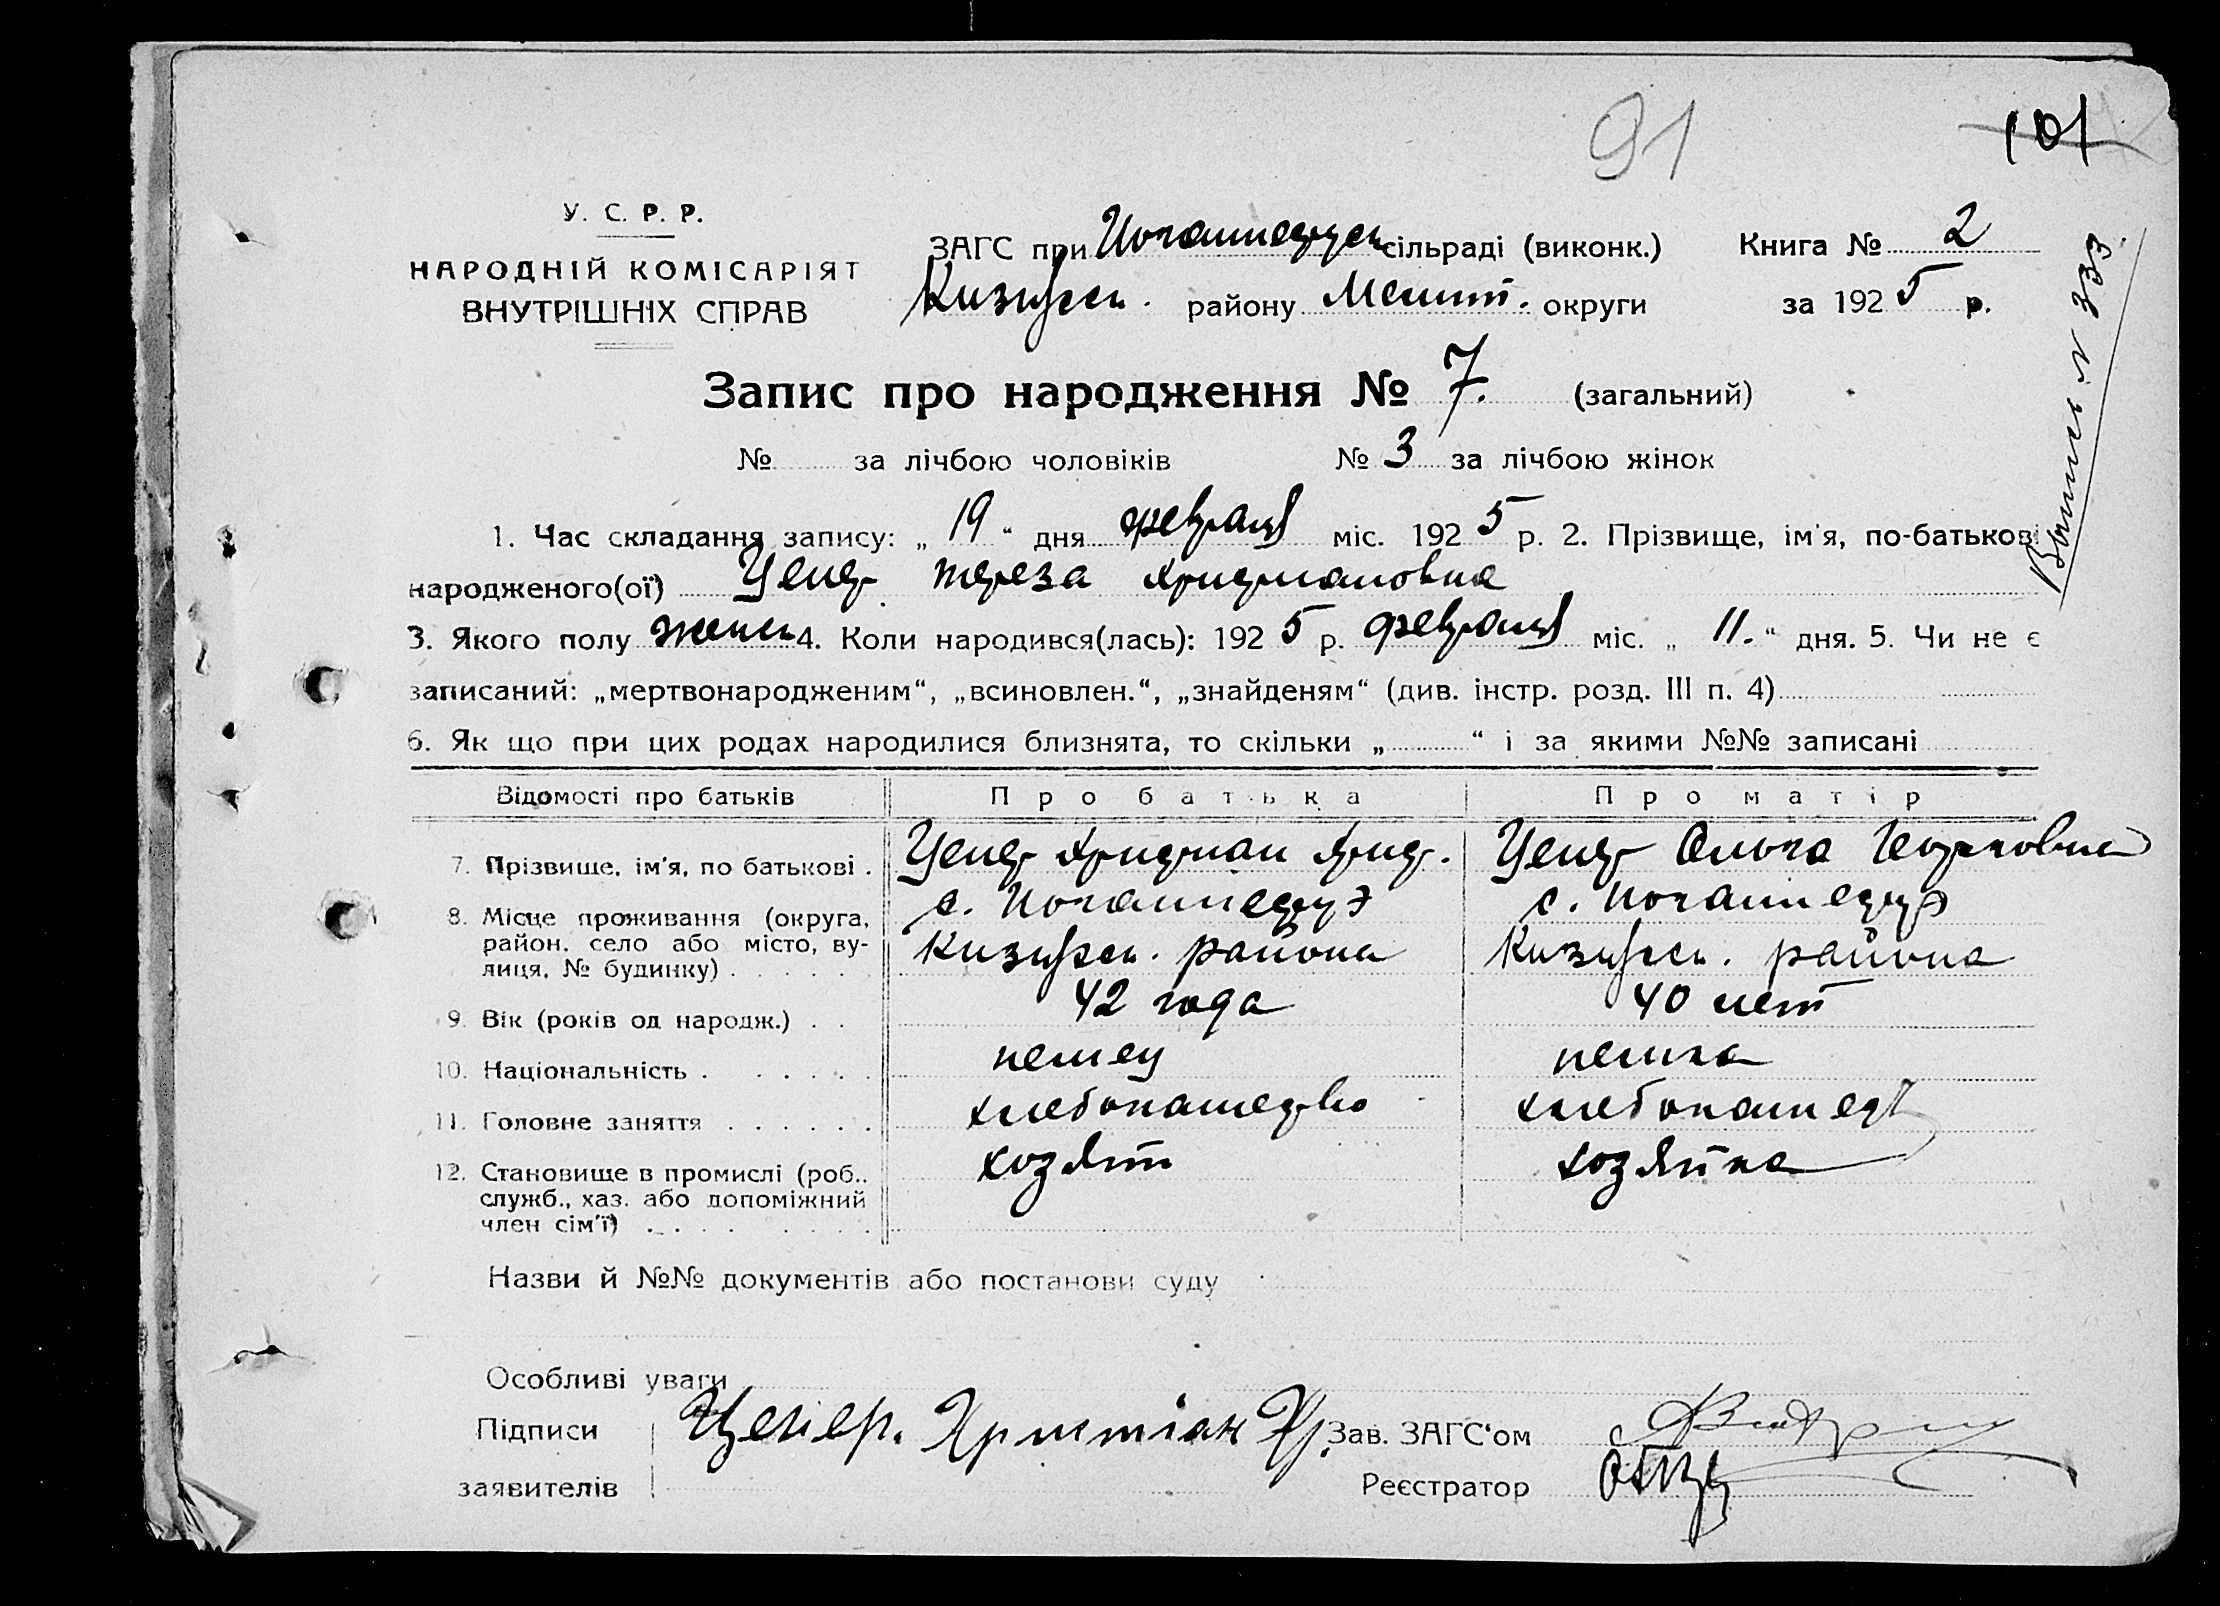 91
101
У. С. Р. Р.
НАРОДНІЙ КОМІСАРІЯТ
ВНУТРІШНІХ СПРАВ
ЗАГС при сільраді (виконк.) Книга № 2
району округи за 1925 р.
Запис про народження № 7. (загальний)
№ за лічбою чоловіків № 3 за лічбою жінок
1. Час складання запису: „19“ дня февраля міс. 1925 р. 2. Прізвище, ім'я, по-батькові
народженого(ої) Тереза Христиановна
3. Якого полу женск 4. Коли народився(лась): 1925 р. февраля міс. „11.“ дня. 5. Чи не є
записаний: „мертвонародженим“, „всиновлен.“, „знайденям“ (див. інстр. розд. III п. 4)
6. Як що при цих родах народилися близнята, то скільки „ “ і за якими №№ записані
Відомості про батьків Про батька Про матір
7. Прізвище, ім'я, по батькові . Христиан Христ. Ольга Георговна
8. Місце проживання (округа, с. Иоганнестру с. Иоганнестру
район. село або місто, ву- района района
лиця, № будинку) . . . . .
9. Вік (років од народж.) . . 42 года 40 лет
10. Національність . . . . . . немец немка
11. Головне заняття . . . . . . хлебопашество хлебопашест
12. Становище в промислі (роб.. хозяин хозяйка
служб., хаз. або допоміжний
член сім'ї) . . . . . . .
Назви й №№ документів або постанови суду
Особливі уваги
Підписи Христиан Хр. Зав. ЗАГС'ом
заявителів Реєстратор
№ 333